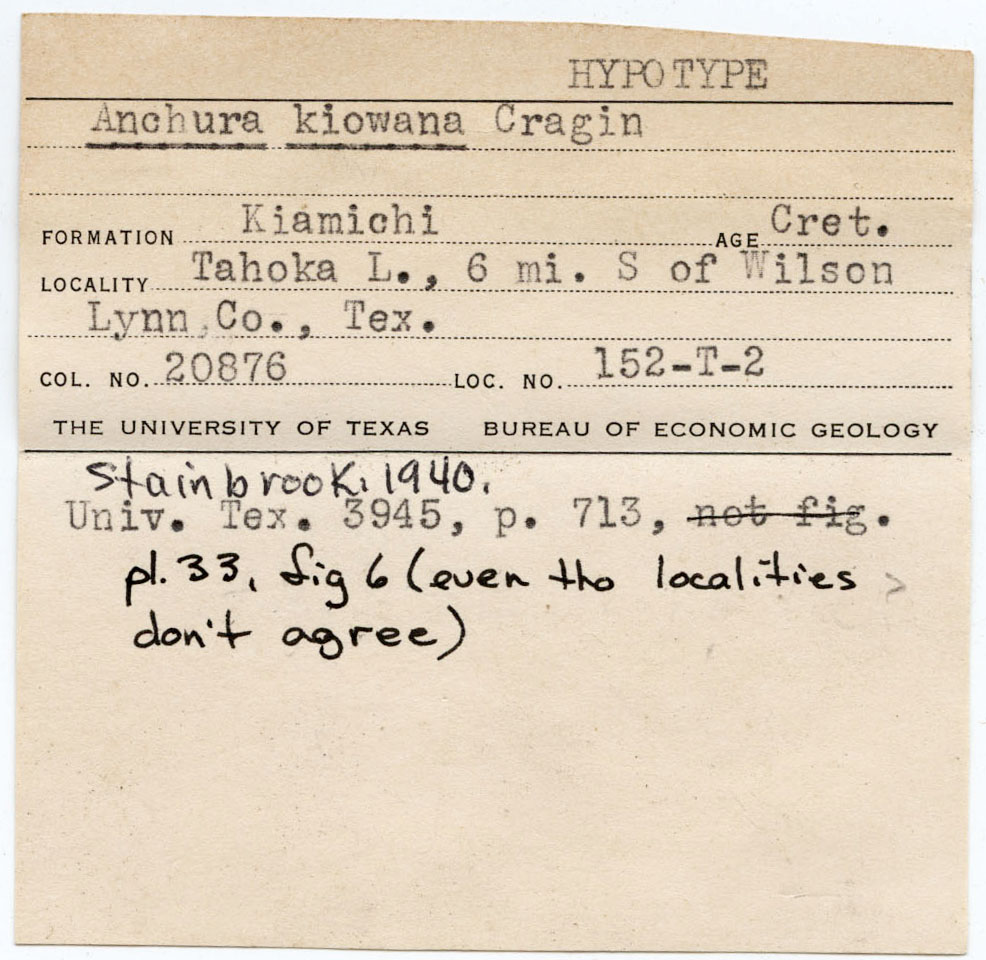 HYPOTYPE
Anchura kiowana Cragin
FORMATION Kiamichi AGE Cret.
LOCALITY Tahoka L., 6 mi. S of Wilson
Lynn Co., Tex.
COL. NO. 20876 LOC. NO. 152-T-2
THE UNIVERSITY OF TEXAS BUREAU OF ECONOMIC GEOLOGY
Stainbrook, 1940.
Univ. Tex. 3945, p. 713, not fig.
pl. 33, fig 6 (even tho localities
don't agree)